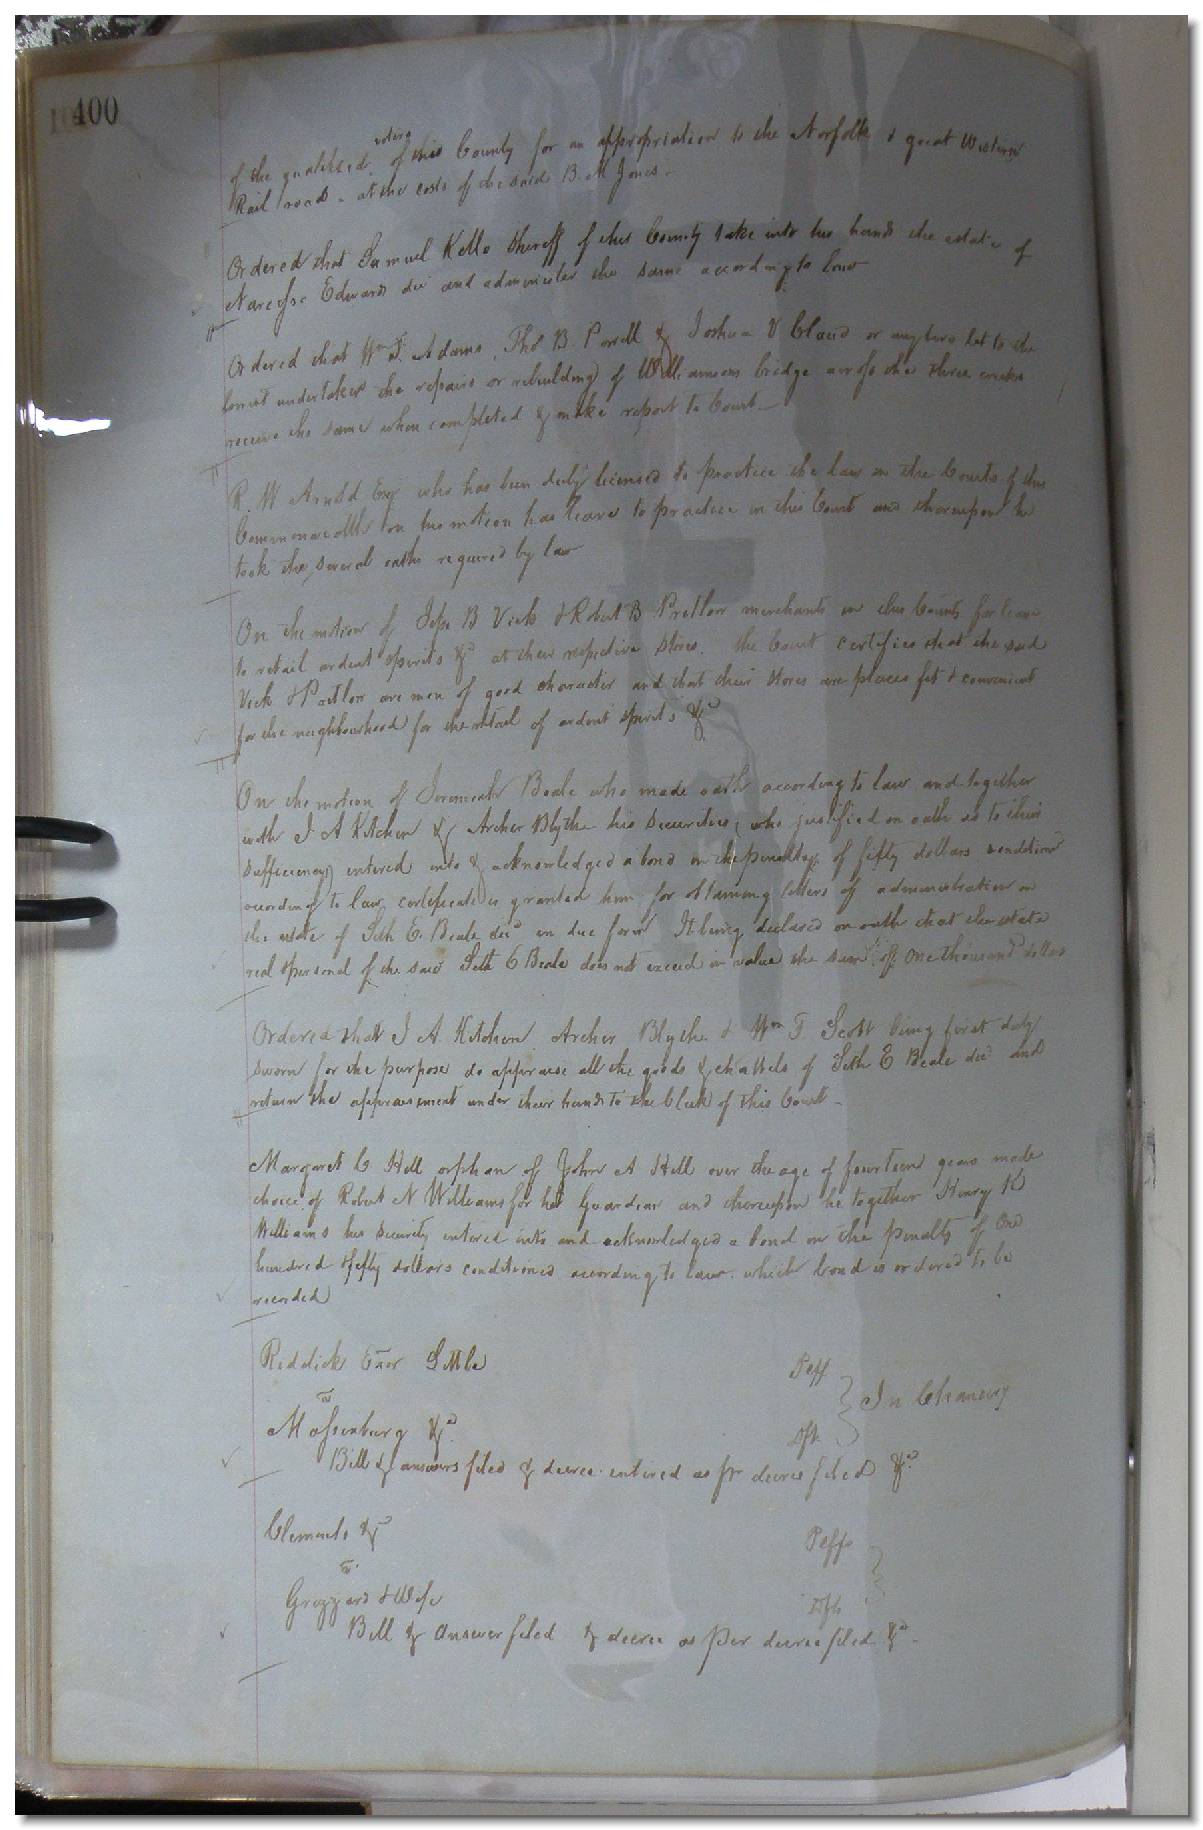 400
of the qualified voters of this County for an appropriation to the Norfolk & great Western
Rail road - at the costs of the said B. M Jones -
Ordered that Samuel Kello Sheriff of this County take into his hands the estate of
Narcissa Edwards decd and administer the same according to law
Ordered that Wm J. Adams, Thos B. Porrell & Joshua V Claud or any two let to the
lowest undertaker the repairs or rebuilding of Williamsons bridge across the three creeks
receive the same when completed & make report to Court -
R. W Arnold Esq who has been duly licensed to practice the law in the Courts of this
Commonwealth on his motion has leave to practice in this Court and thereupon he
took the several oaths required by law
On the motion of Jesse B Vick & Robert B Pretlow merchants in this County for leave
to retail ardent spirits &c at their respective Stores. the Court certifies that the said
Vick & Pretlow are men of good character and that their stores are places fit & convenient
for the neighbourhood for the retail of ardent spirits &c
On the motion of Jeremiah Beale who made oath according to law and together
with J A Kitchen & Archer Blythe his securities, who justified on oath as to their
sufficiency entered into & acknowledged a bond in the penalty of fifty dollars condition
according to law, certificate is granted him for obtaining letters of administration on
the estate of Seth E. Beale decd in due form It being declared on oath that the estate
real & personal of the said Seth E Beale does not exceed in value the sum of one thousand dollars
Ordered that J A Kitchen Archer Blythe & Wm T. Scott being first duly
sworn for the purpose do appraise all the goods & chattels of Seth E Beale decd and
return the appraisement under their hands to the Clerk of this Court -
Margaret C Hill orphan of John A Hill over the age of fourteen years made
choice of Robert N Williams for her Guardian and thereupon he together Henry K
Williams his security entered into and acknowledged a bond in the penalty of One
hundred & fifty dollars conditioned according to law. which bond is ordered to be
recorded
Reddick Exor Little Peff
vs In Chancery
Massenburg &c Dft
Bill & answers filed & decree entered as pr decree filed &c
Clements &c Peffs
vs
Grizzard & Wife Dfts
Bill & Answer filed & decree as per decree filed &c -